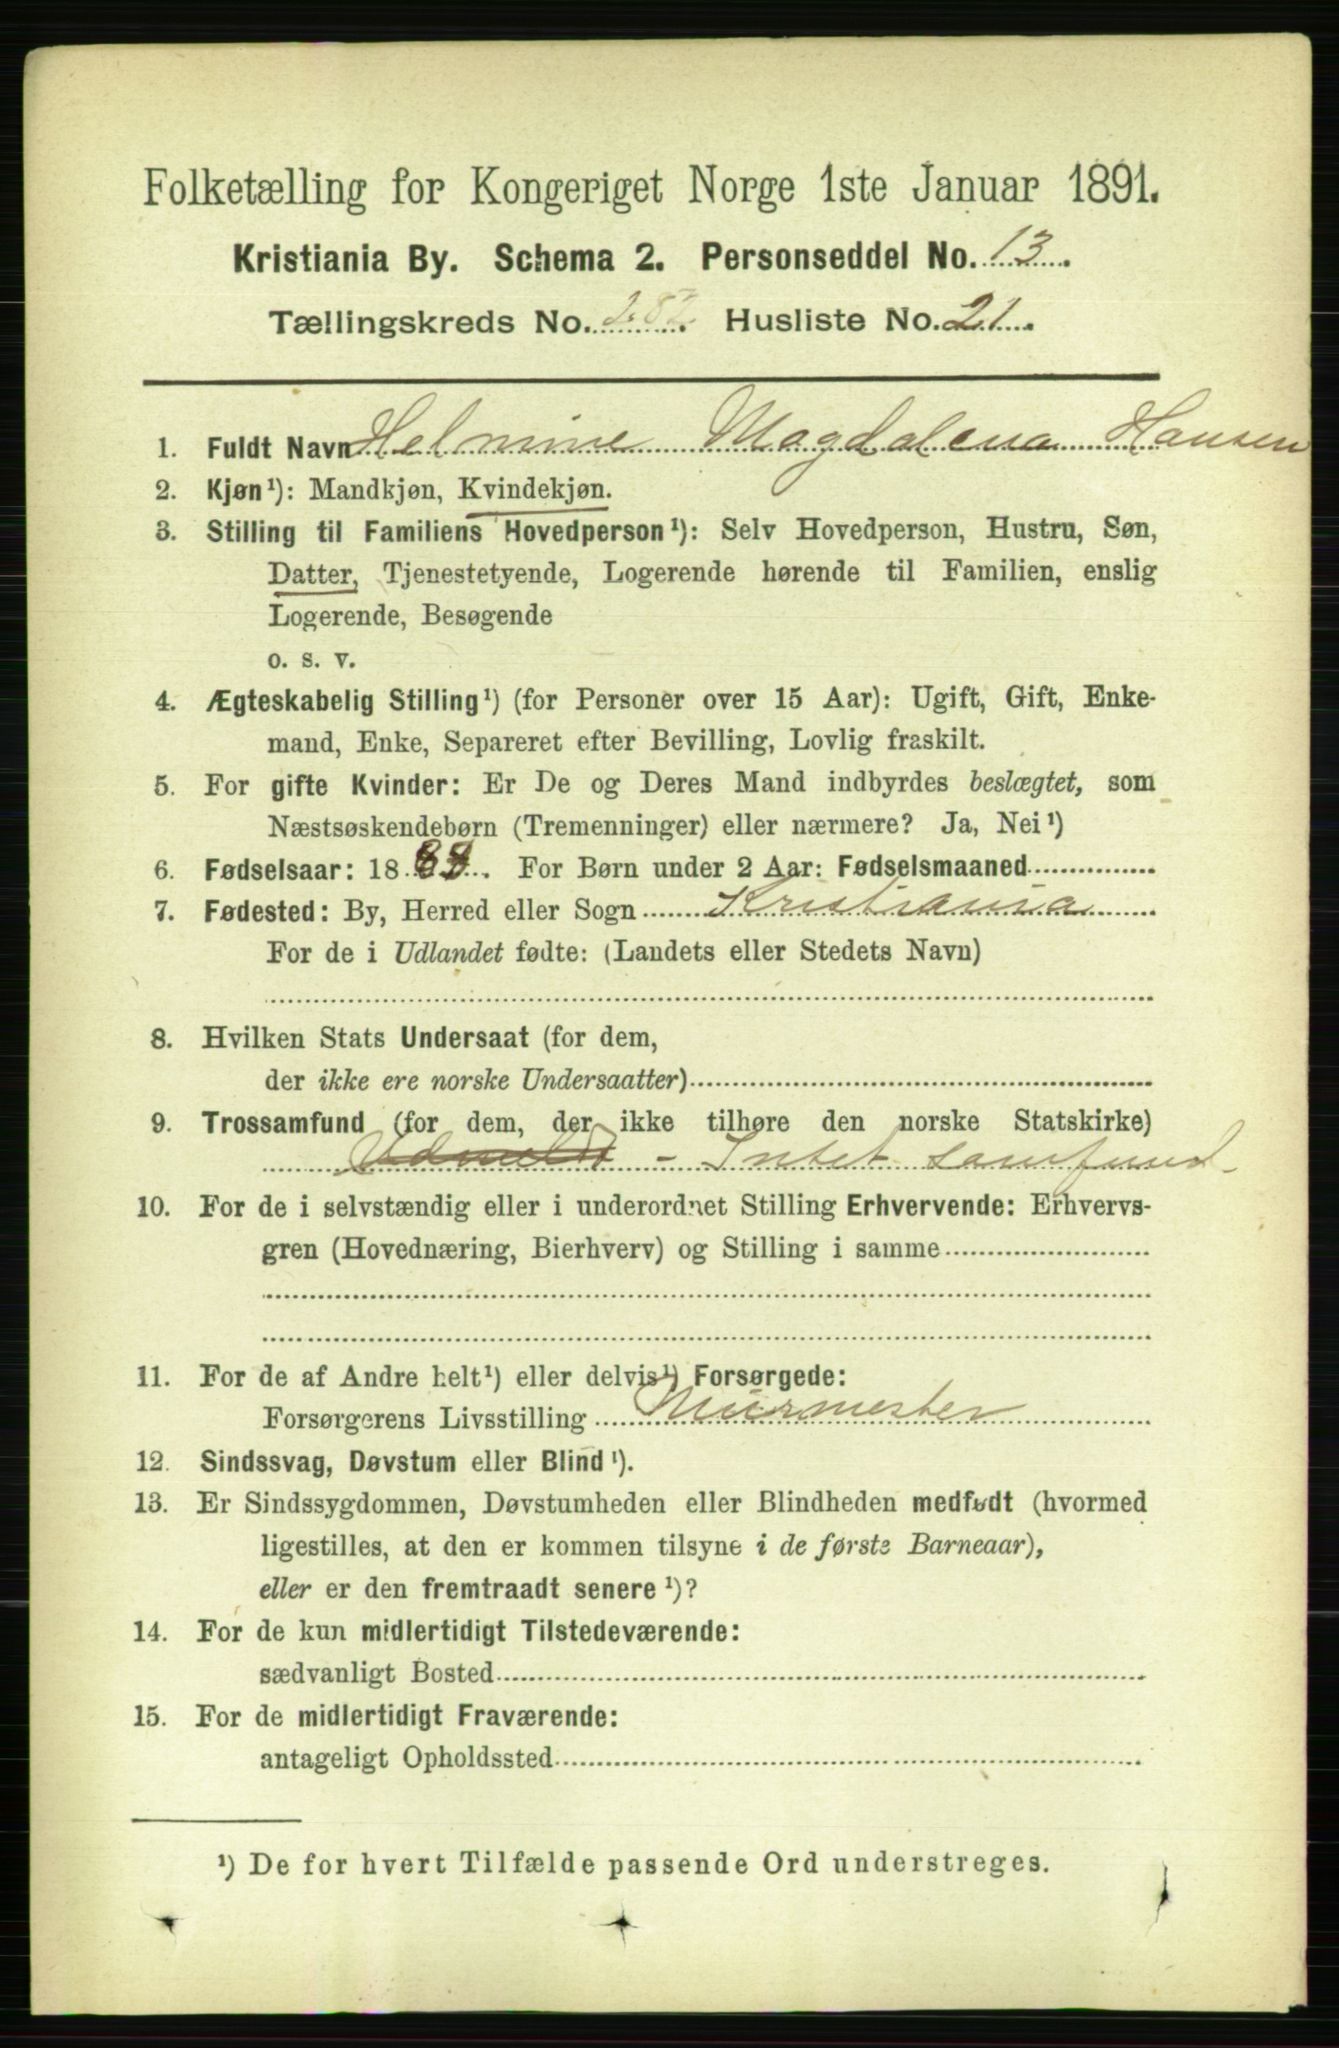 Folketælling for Kongeriget Norge 1ste Januar 1891.
Kristiania By. Schema 2. Personseddel No. 13.
Tællingskreds No. 282. Husliste No. 21.
1. Fuldt Navn Helmine Magdalena Hansen
2. Kjøn¹): Mandkjøn, Kvindekjøn.
3. Stilling til Familiens Hovedperson¹): Selv Hovedperson, Hustru, Søn,
Datter, Tjenestetyende, Logerende hørende til Familien, enslig
Logerende, Besøgende
o. s. v.
4. Ægteskabelig Stilling¹) (for Personer over 15 Aar): Ugift, Gift, Enke-
mand, Enke, Separeret efter Bevilling, Lovlig fraskilt.
5. For gifte Kvinder: Er De og Deres Mand indbyrdes beslægtet, som
Næstsøskendebørn (Tremenninger) eller nærmere? Ja, Nei¹)
6. Fødselsaar: 18 . For Børn under 2 Aar: Fødselsmaaned
7. Fødested: By, Herred eller Sogn Kristiania
For de i Udlandet fødte: (Landets eller Stedets Navn)
8. Hvilken Stats Undersaat (for dem,
der ikke ere norske Undersaatter)
9. Trossamfund (for dem, der ikke tilhøre den norske Statskirke)
Udmeldt - Intet samfund
10. For de i selvstændig eller i underordnet Stilling Erhvervende: Erhvervs-
gren (Hovednæring, Bierhverv) og Stilling i samme
11. For de af Andre helt¹) eller delvis¹) Forsørgede:
Forsørgerens Livsstilling Murmester
12. Sindssvag, Døvstum eller Blind¹).
13. Er Sindssygdommen, Døvstumheden eller Blindheden medfødt (hvormed
ligestilles, at den er kommen tilsyne i de første Barneaar),
eller er den fremtraadt senere¹)?
14. For de kun midlertidigt Tilstedeværende:
sædvanligt Bosted
15. For de midlertidigt Fraværende:
antageligt Opholdssted
¹) De for hvert Tilfælde passende Ord understreges.